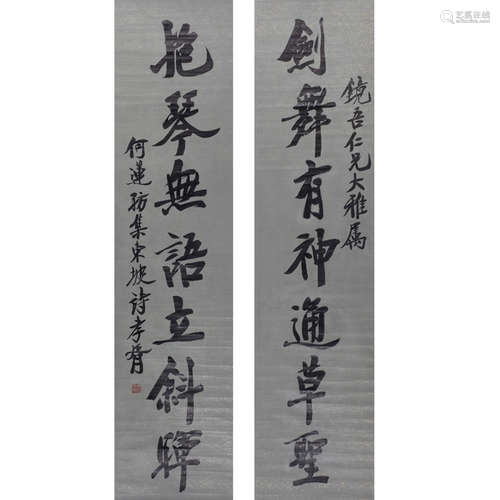 劍舞有神通草聖
鏡吾仁兄大雅属
抱琴無語立斜暉
何蓮舫集東坡詩孝胥